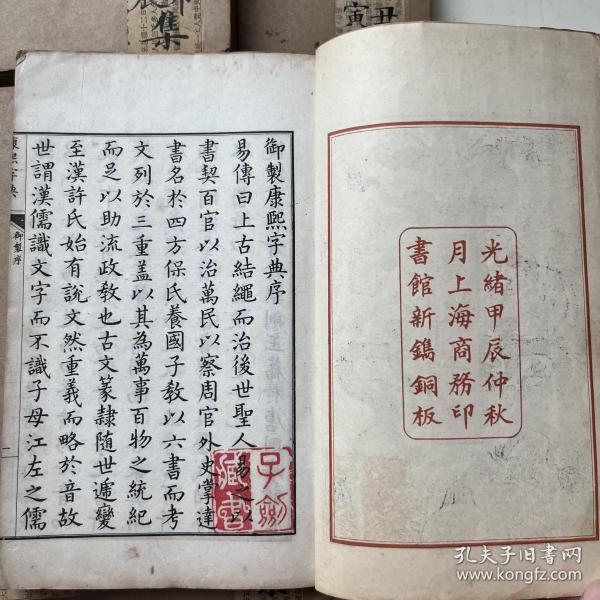 光緒甲辰仲秋
月上海商務印
書館新鐫銅板
御製康熙字典序
易傳曰上古結繩而治後世聖人易之以
書契百官以治萬民以察周官外史掌達
書名於四方保氏養國子教以六書而考
文列於三重蓋以其為萬事百物之統紀
而足以助流政教也古文篆隸隨世遞變
至漢許氏始有說文然重義而略於音故
世謂漢儒識文字而不識子母江左之儒
康熙字典
御製序
一
子劍
藏書
集
寅
丑
孔夫子旧书网
www.kongfz.com